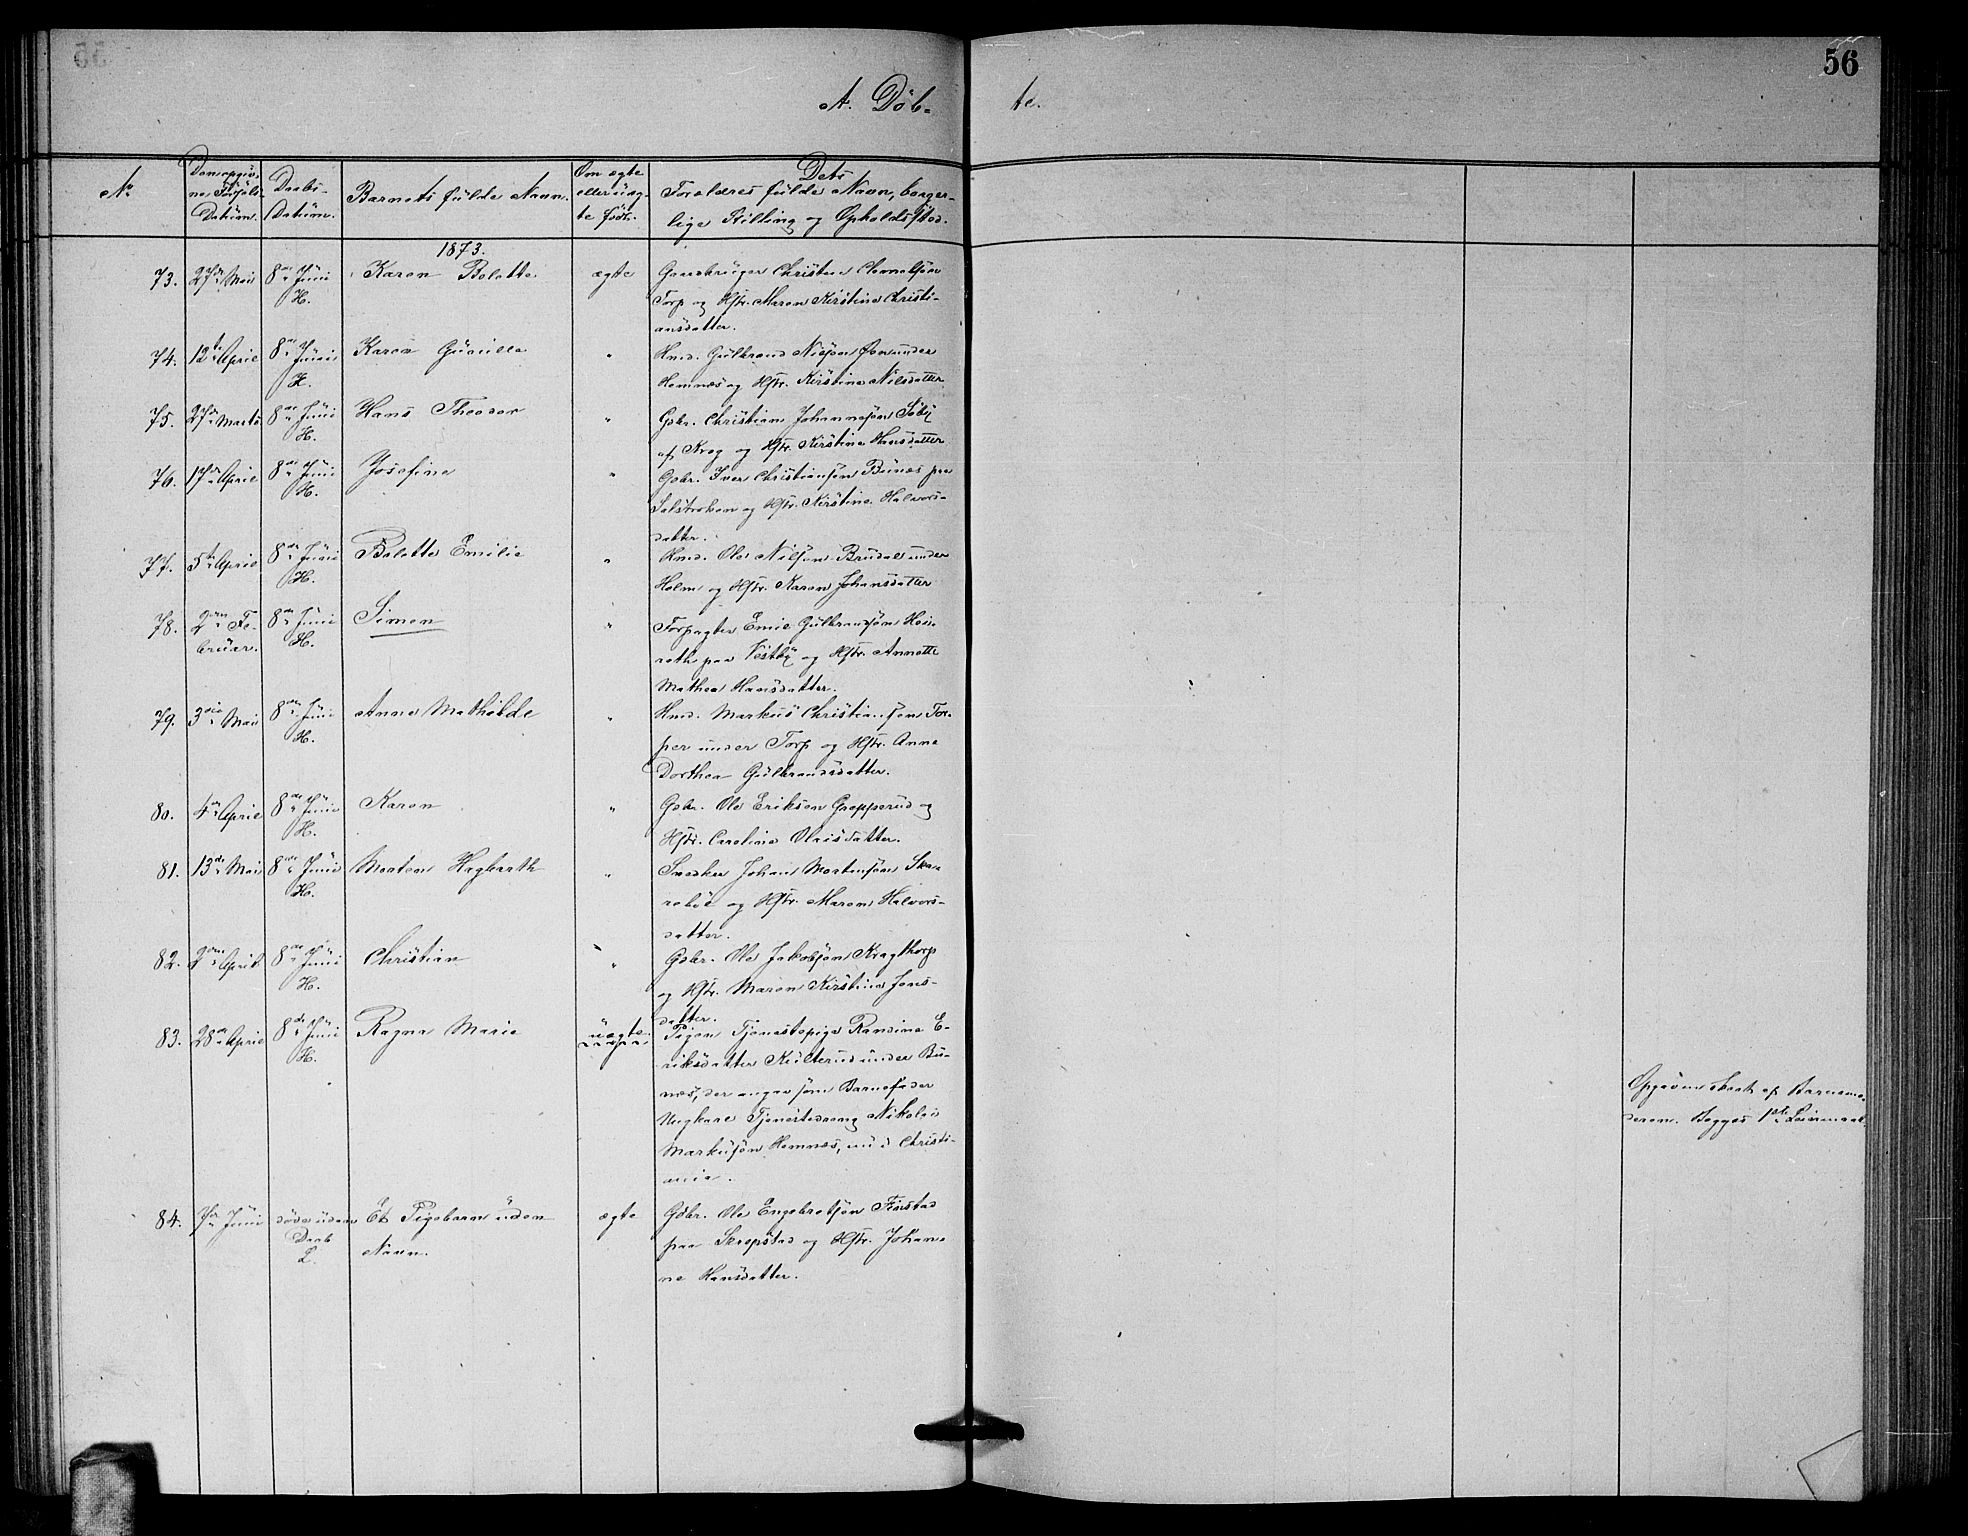 56
A. Döb-
te.
No
Den opgiv-
ne Födsels-
Datüm.
Daabs-
Datüm.
Barnets fülde Navn.
Om ægte
eller üæg-
te født.
Dets
Forældres fülde Navn, borger-
lige Stilling og Opholdssted.
1873.
73. 27de Mai 8de Jüni Karen Bolette ægte Gaardbrüger Christen
H. Torp og Hstr. Maren Kirstine Christi-
ansdatter.
74. 12te April 8de Jüni Karen Günille " Hmd. Gülbrand under
H. Hemnæs og Hstr. Kirstine Nilsdatter
75. 27de Marts 8de Jüni Hans Theodor " Gbr. Christian Johannesøn
H. af Krog og Hstr. Kirstine Hansdatter
76. 17de April 8de Jüni Josefine " Gbr. Iver Christiansøn Bünæs paa
H. og Hstr. Kirstine Halvors-
datter.
77. 5te April 8de Jüni Bolette Emilie " Hmd. Ole Nilsøn Brudal under
H. Holm og Hstr. Karen Johansdatter
78. 2den Fe- 8de Jüni Simen " Forpagter Emil Gülbrandsøn Hem-
brüar. H. paa Vestby og Hstr. Annette
Mathea Hansdatter.
79. 3die Mai 8de Jüni Anna Mathilde " Hmd. Markus Christiansøn Tor-
H. per under Torp og Hstr. Anne
Dorthea Gülbrandsdatter.
80. 4de April 8de Jüni Karen " Gbr. Ole Eriksen Grepperud og
H. Hstr. Caroline Olaisdatter.
81. 13de Mai 8de Jüni Morten Hagbarth " Snedker Johan Mortensøn
H. og Hstr. Maren Halvors-
datter.
82. 2den April 8de Jüni Christian " Gbr. Ole Jakobsøn Kragtorp
H. og Hstr. Maren Kirstine Jons-
datter.
83. 28de April 8de Jüni Ragna Marie üægte Pigen Tjenestepige Randine E-
H. riksdatter Külterud under Bü-
næs, der angav som Barnefader
Ungkarl Tjenestedreng Nikolai
Markusøn Hemnæs, nu i Christi-
ania.
Opgaven skeet af Barnemo-
deren. Begges 1ste Leiermaal.
84. 7de Jüni døde uden Et Pigebarn üden ægte Gbr. Ole Engebretsøn Finstad
Daab Navn. paa Skrepstad og Hstr. Johan-
L. ne Hansdatter.